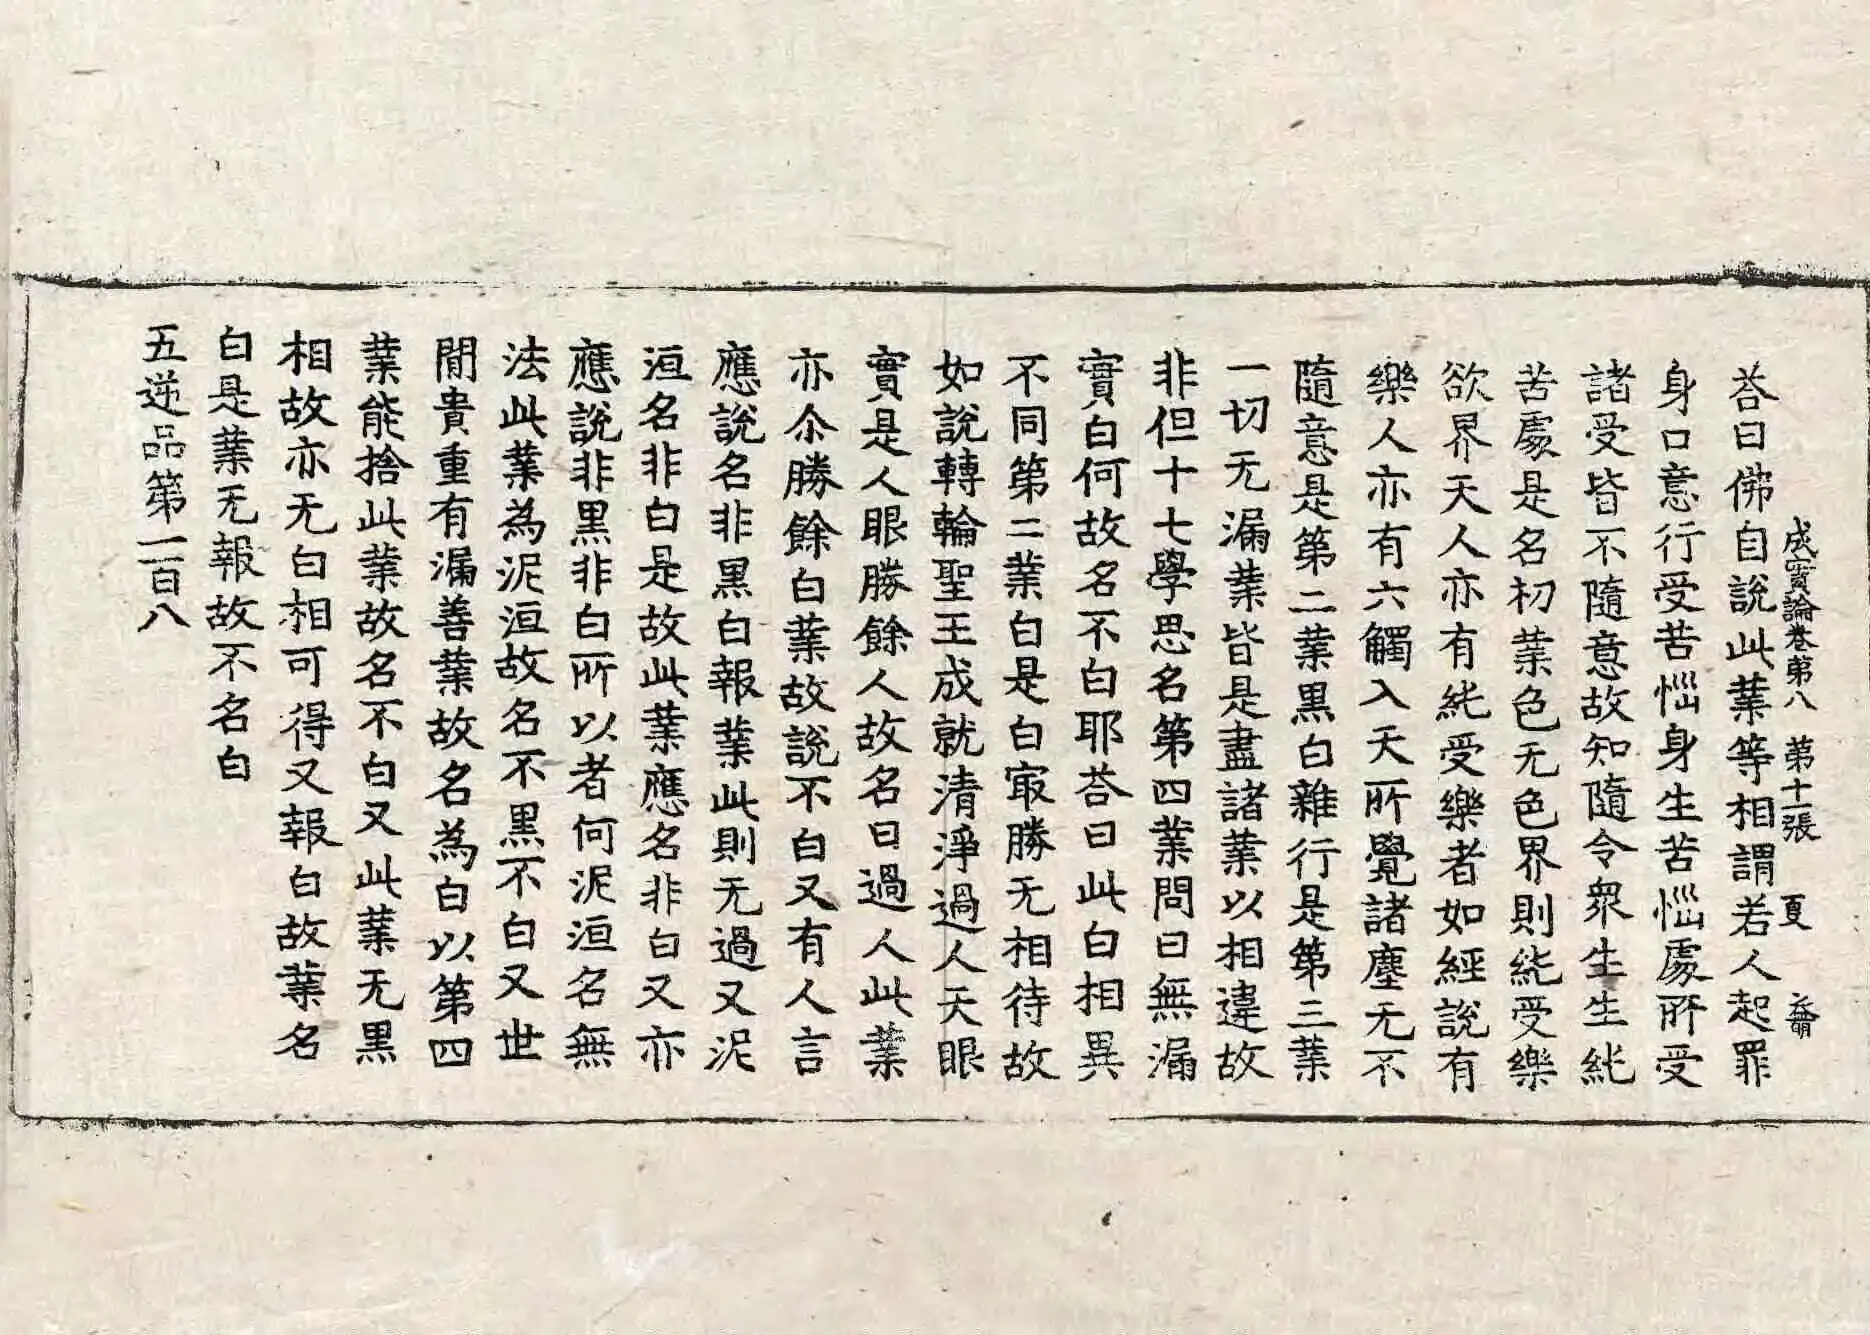 成實論卷第八　第十一張　夏
荅曰佛自說此業等相謂若人起罪
身口意行受苦惱身生苦惱處所受
諸受皆不隨意故知隨令衆生生純
苦處是名初業色无色界則純受樂
欲界天人亦有純受樂者如經說有
樂人亦有六觸入天所覺諸塵无不
隨意是第二業黑白雜行是第三業
一切无漏業皆是盡諸業以相違故
非但十七學思名第四業問曰無漏
實白何故名不白耶荅曰此白相異
不同第二業白是白㝡勝无相待故
如說轉輪聖王成就清淨過人天眼
實是人眼勝餘人故名曰過人此業
亦尒勝餘白業故說不白又有人言
應說名非黑白報業此則无過又泥
洹名非白是故此業應名非白又亦
應說非黑非白所以者何泥洹名無
法此業為泥洹故名不黑不白又世
閒貴重有漏善業故名為白以第四
業能捨此業故名不白又此業无黑
相故亦无白相可得又報白故業名
白是業无報故不名白
五逆品第一百八